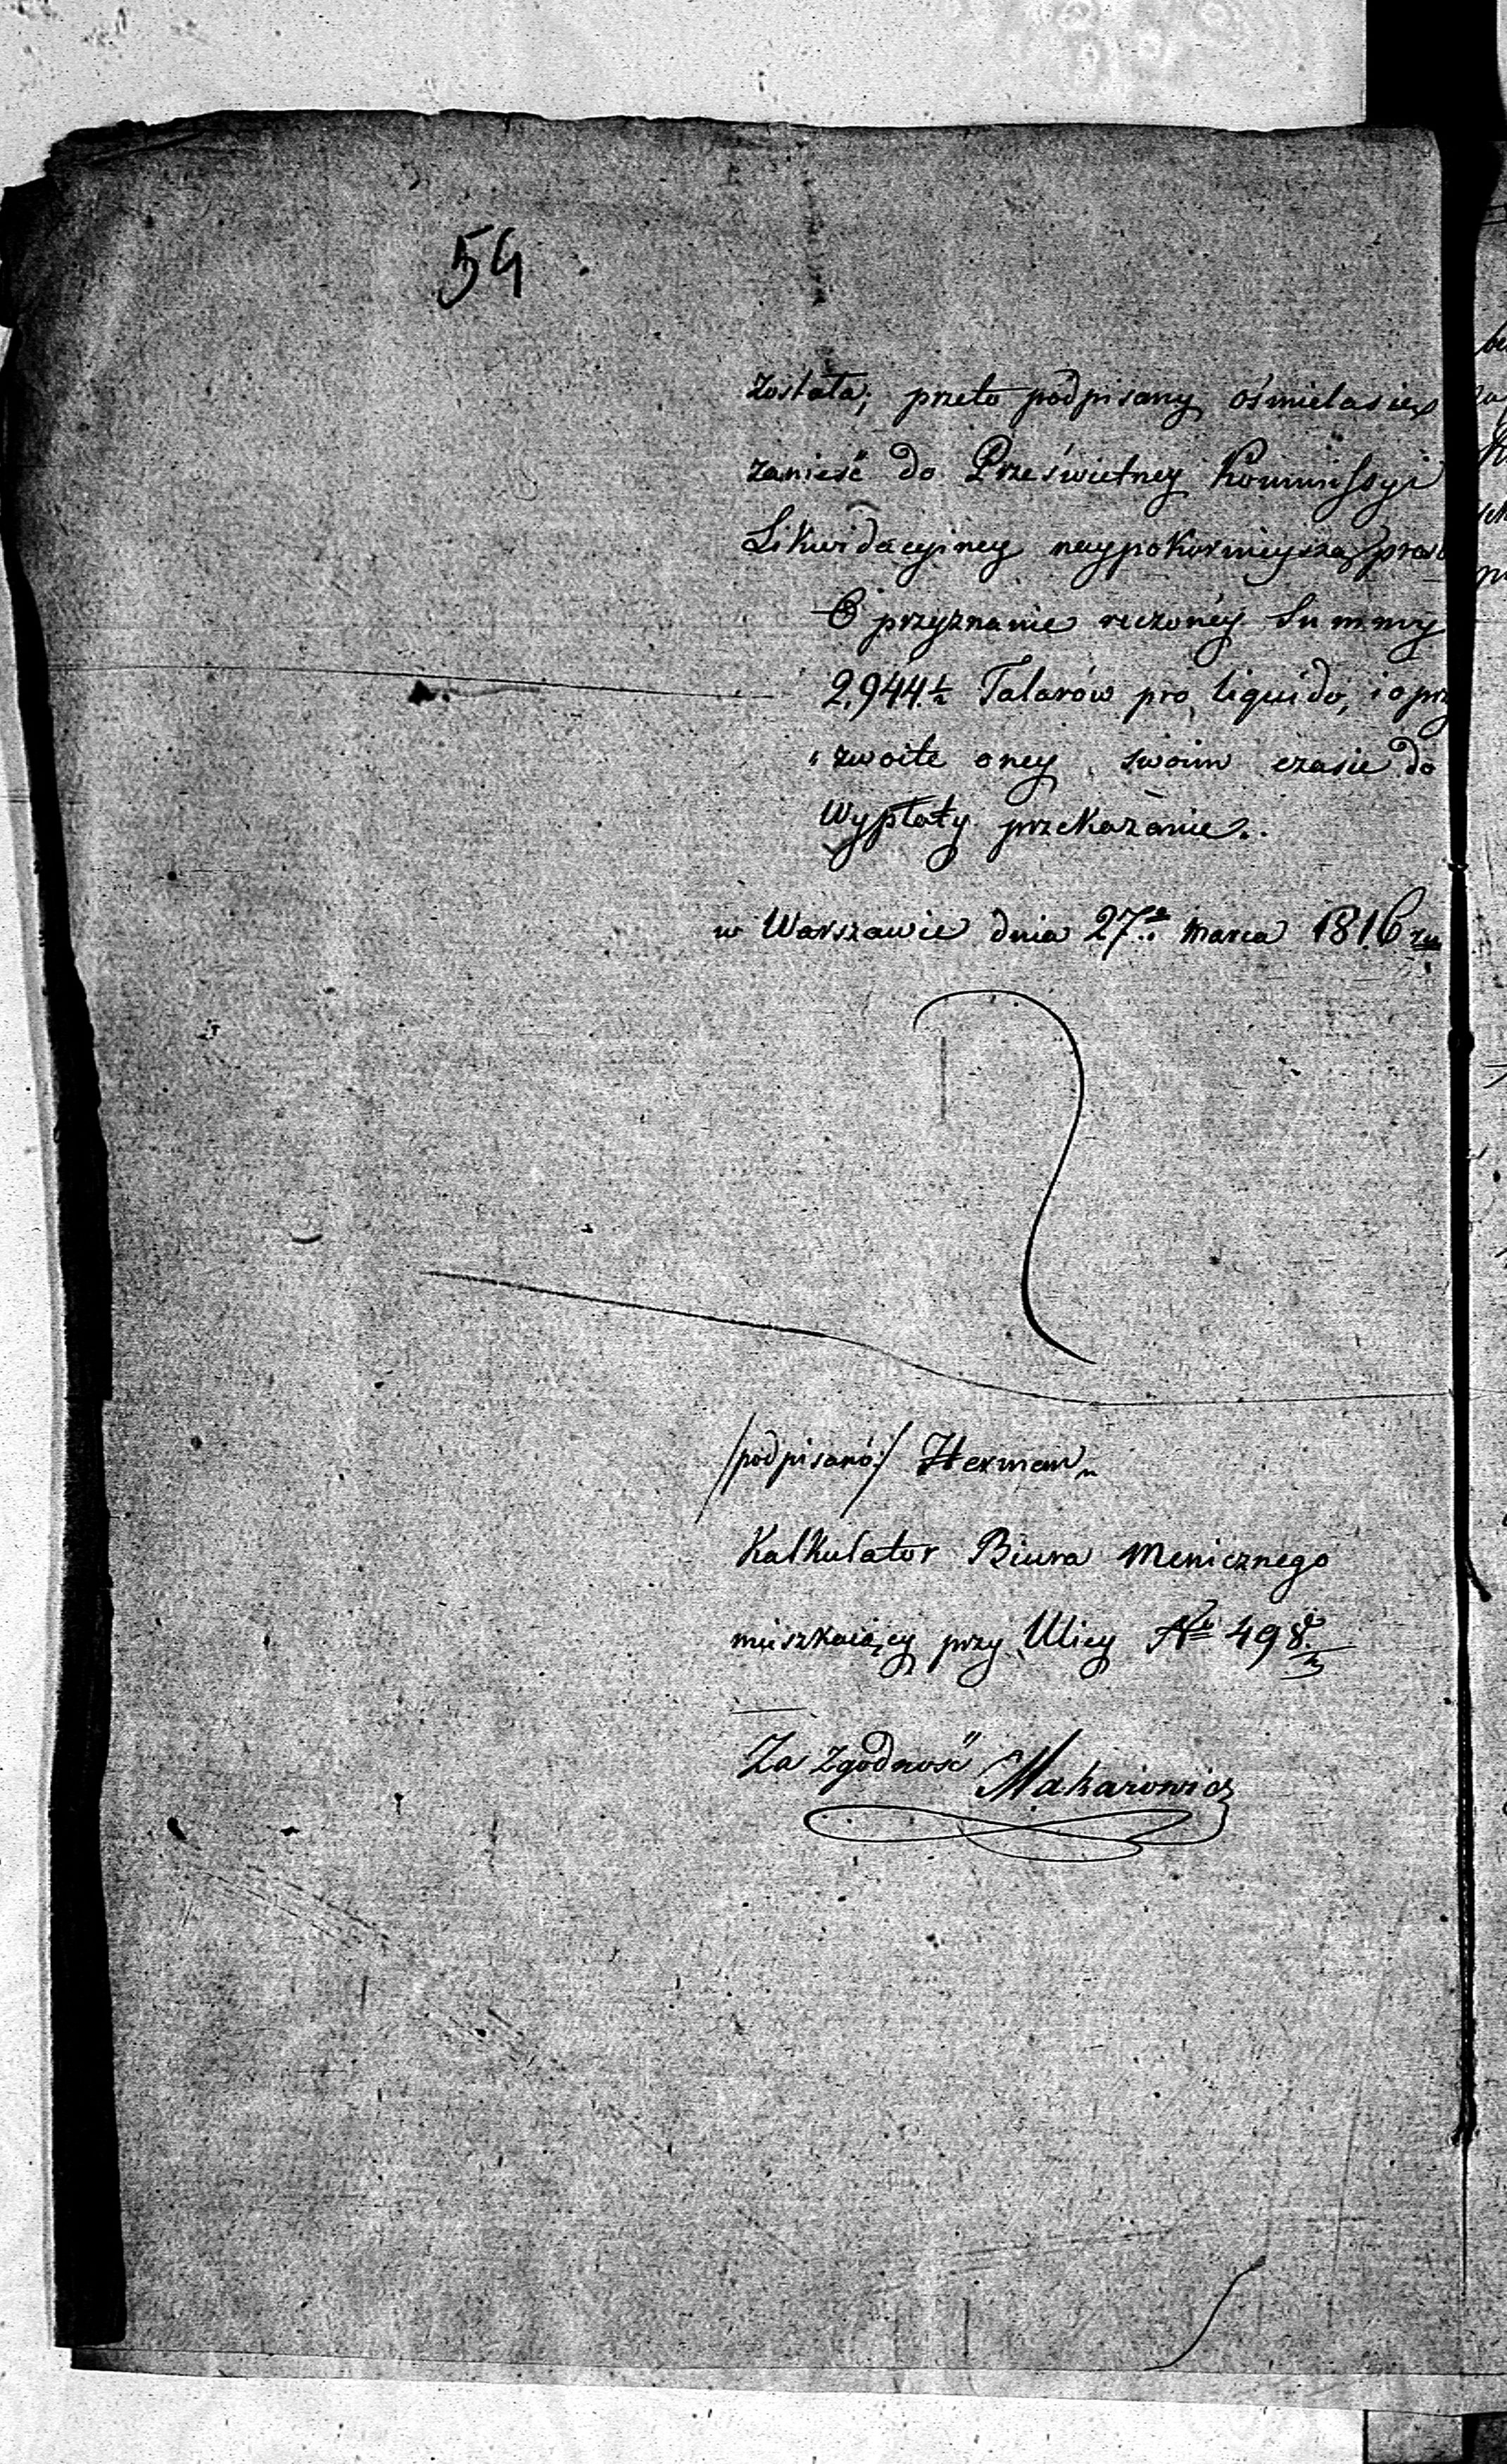 54
została; przeto podpisany ośmiela się
zanieść do Prześwietney Kommissyi
Likwidacyiney naypokornieyszą
O przyznanie rzczonéy Summy
2.944.½ Talarów pro liquido, i o
zwoite oney swoim czasie do
Wypłaty przekazanie..
w Warszawie dnia 27.º marca 1816
/podpisano:/ Hermann
Kalkulator Biura Menicznego
mieszkaiący przy Ulicy Nº 498.
Za zgodność Makarowicz